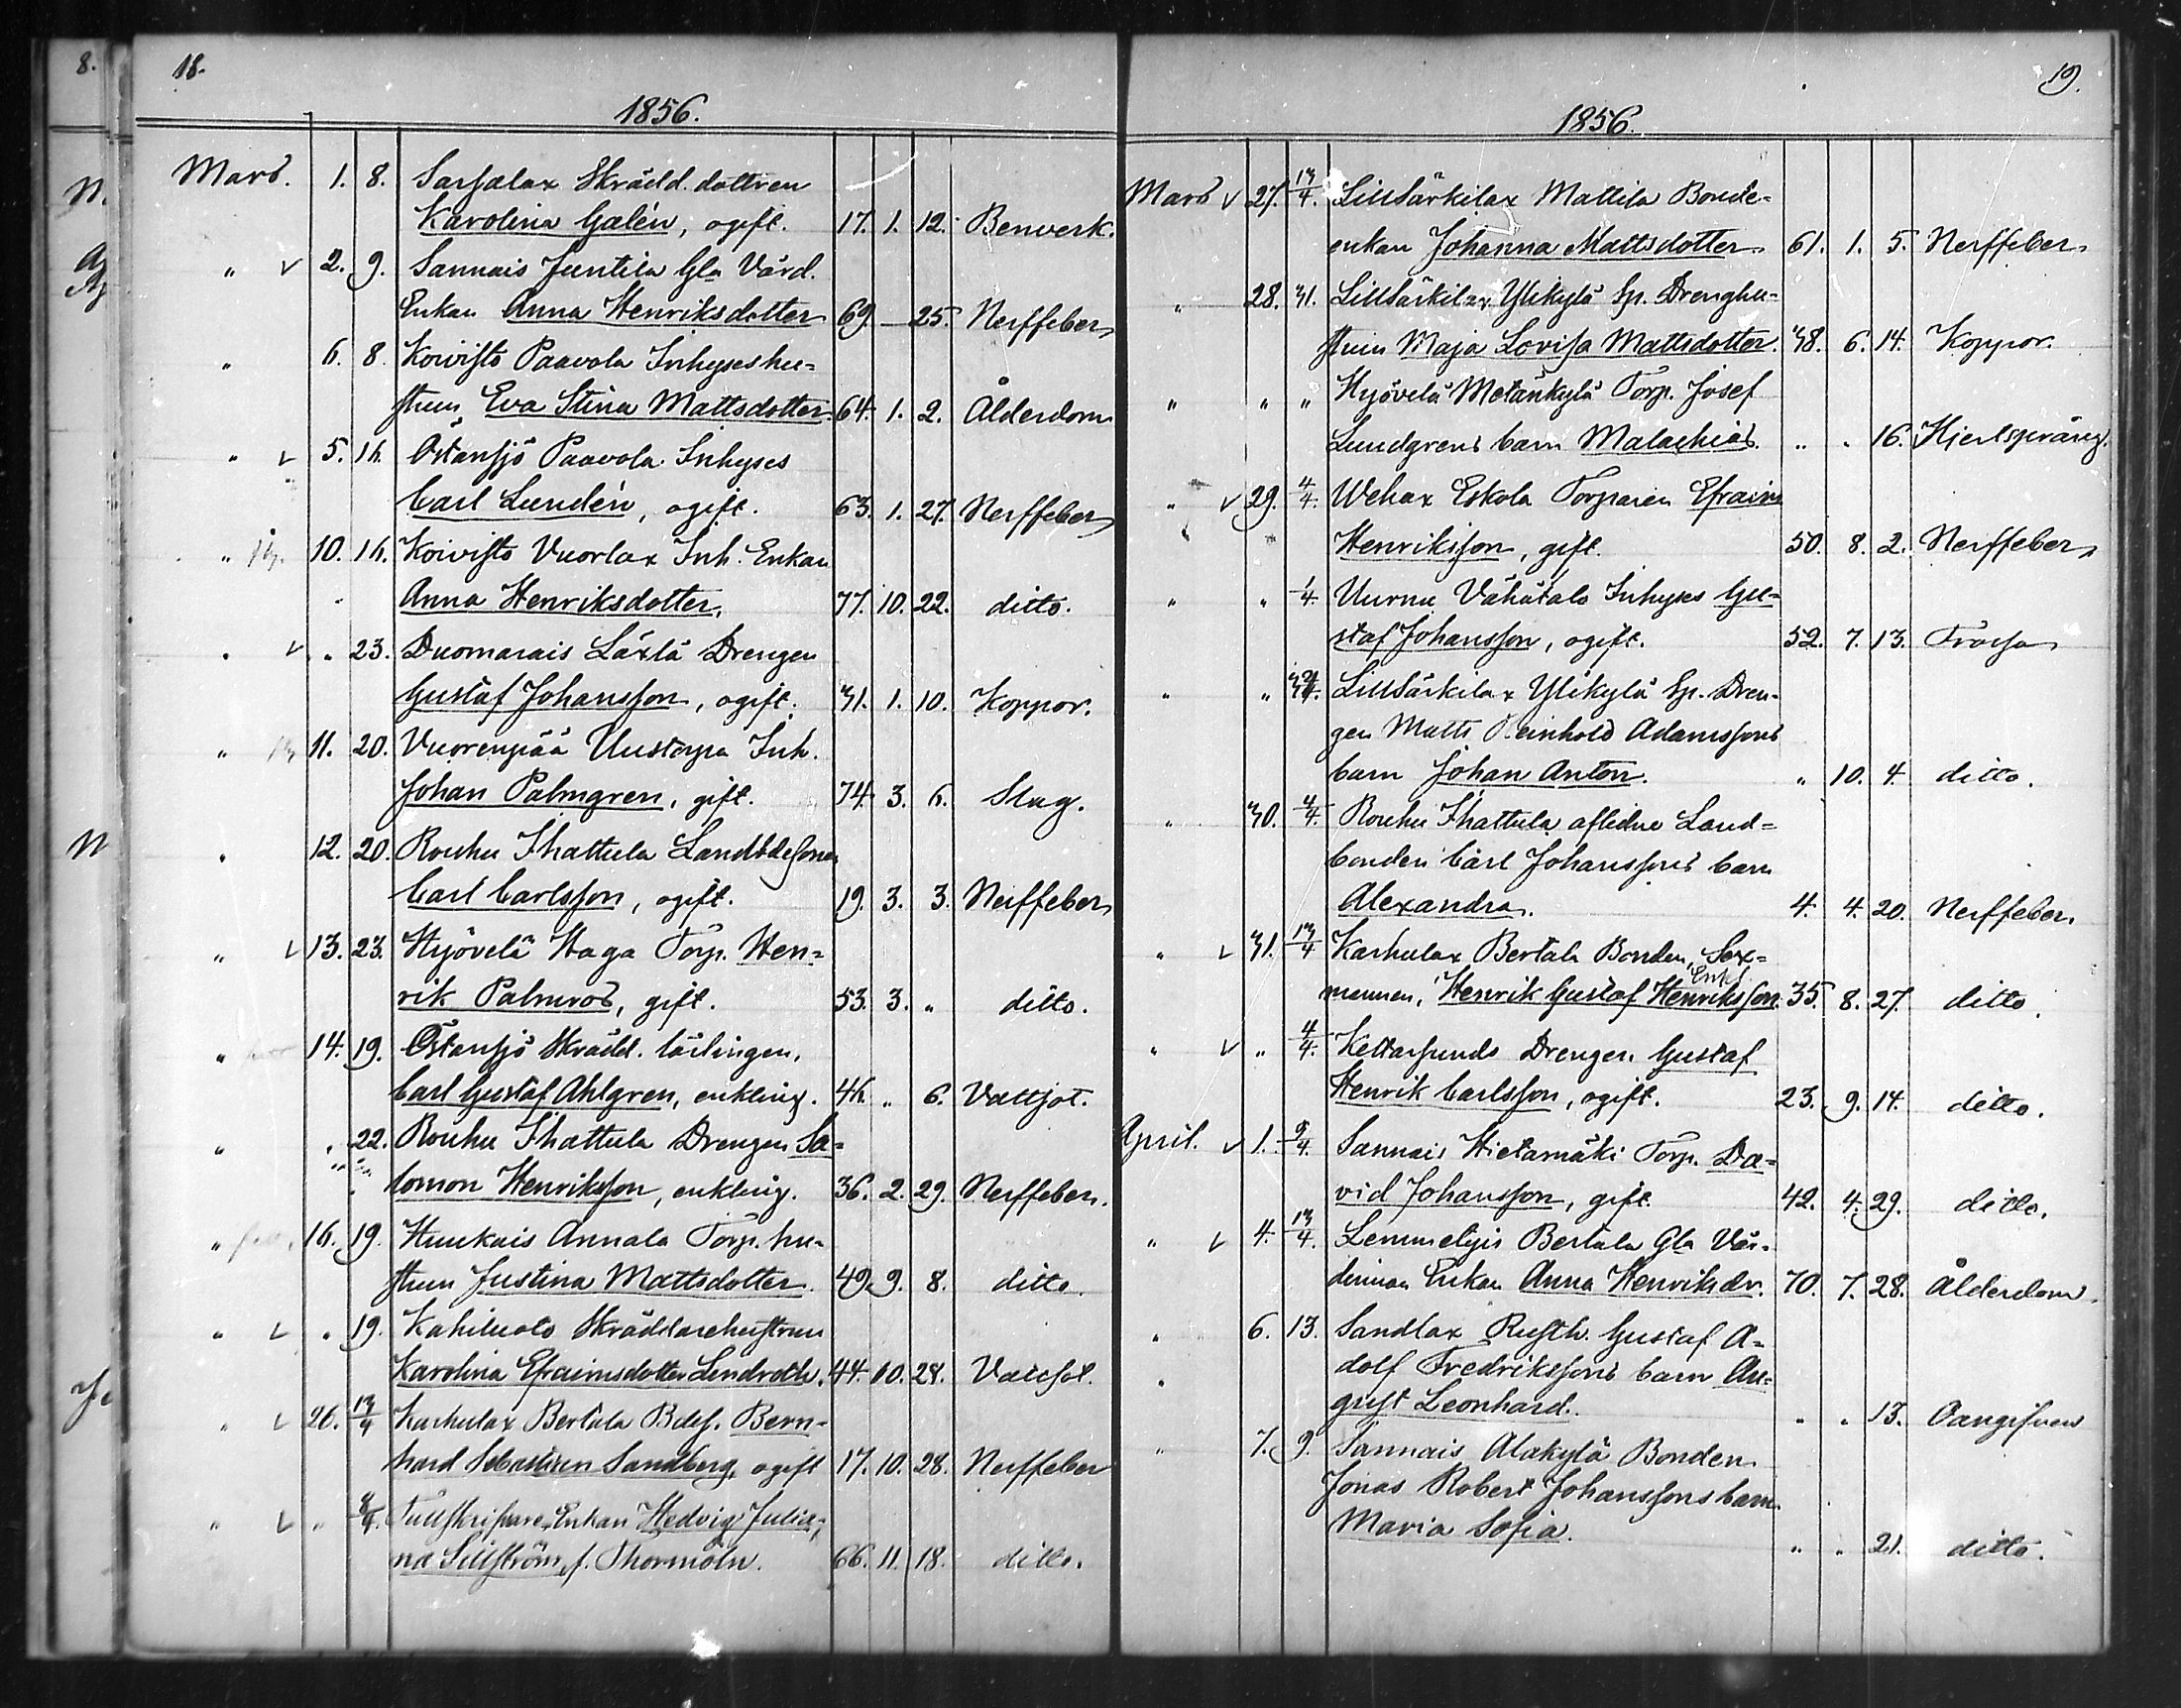 18.
1856.
Mars. 1. 8. Sarsalax Skrädd. dottren
Karolina Galén, ogift. 17. 1. 12. Benverk.
" v 2. 9. Sannais Juntila Gla Värd.
Enkan Anna Henriksdotter 69. — 25. Nerffeber
" 6. 8. Koivisto Paavola Inhyseshu-
strun Eva Stina Mattsdotter 64. 1. 2. Ålderdom
" v 5. 16. Östansjö Paavola Inhyses
Carl Lundén, ogift. 63. 1. 27. Nerffeber
" 10. 16. Koivisto Vuorlax Inh. Enkan
Anna Henriksdotter. 77. 10. 22. ditto.
" v " 23. Duomarais Läxlä Drengen
Gustaf Johansson, ogift. 31. 1. 10. Koppor.
" 11. 20. Vuorenpää Uustorpa Inh.
Johan Palmgren, gift. 74. 3. 6. Slag.
" 12. 20. Rouhu Ihattula Landbdesonen
Carl Carlsson, ogift. 19. 3. 3. Nerffeber
" v 13. 23. Hyövelä Haga Torp. Hen-
rik Palmros, gift. 53. 3. " ditto.
" 14. 19. Östansjö Skrädd. lärlingen,
Carl Gustaf Ahlgren, enkling. 46. " 6. Vattsot.
" " 22. Rouhu Ihattula Drengen Sa-
lomon Henriksson, enkling. 36. 2. 29. Nerffeber.
" 16. 19. Huukais Annala Torp. hu-
strun Justina Mattsdotter. 49. 9. 8. ditto.
" v " 19. Kahiluoto Skräddarehustrun
Karolina Efraimsdotter Lendroth. 44. 10. 28. Vattsot.
" v 26. 13/4 Karhulax Bertala Bdes. Bern-
hard Sebastian Sandberg, ogift 17. 10. 28. Nerffeber
" v " 8/4. Tullskrifvare Enkan Hedvig Julia-
na Sillström, f. Thormöln. 66. 11. 18. ditto.
19.
1856.
Mars v 27. 13/4. Lillsärkilax Mattila Bonde-
enkan Johanna Mattsdotter. 61. 1. 5. Nerffeber
" 28. 31. Lillsärkilax Ylikylä Sp. Drenghu-
strun Maja Lovisa Mattsdotter. 38. 6. 14. Koppor.
" " " Hyövelä Metänkylä Torp. Josef
Lundgrens barn Malachias. " " 16. Hjertsprång.
" v 29. 4/4. Wehax Eskola Torparen Efraim
Henriksson, gift. 50. 8. 2. Nerffeber
" " 1/4. Uurnu Vähätalo Inhyses Gu-
staf Johansson, ogift. 52. 7. 13. Trossa
" " Lillsärkilax Ylikylä Sp. Dren-
gen Matts Reinhold Adamssons
barn Johan Anton. " 10. 4. ditto.
" 30. 4/4. Rouhu Ihattula aflidne Land-
bonden Carl Johanssons barn
Alexandra. 4. 4. 20. Nerffeber.
" v 31. 13/4 Karhulax Bertala Bonden, Sex-
mannen, Henrik Gustaf Henriksson 35. 8. 27. ditto.
" v " 4/4. Kettarsunds Drengen Gustaf
Henrik Carlsson, ogift. 23. 9. 14. ditto.
April. v 1. 9/4. Sannais Hietamäki Torp. Da-
vid Johansson, gift. 42. 4. 29. ditto.
" v 4. 13/4. Lemmelyis Bertala Gla Vär-
dinnan Enkan Anna Henriksdr. 70. 7. 28. Ålderdom.
" 6. 13. Sandlax Rusth. Gustaf A-
dolf Fredrikssons barn Au-
gust Leonhard. " " 13. Oangifven
" 7. 9. Sannais Alakylä Bonden
Jonas Robert Johanssons barn
Maria Sofia. " " 21. ditto.